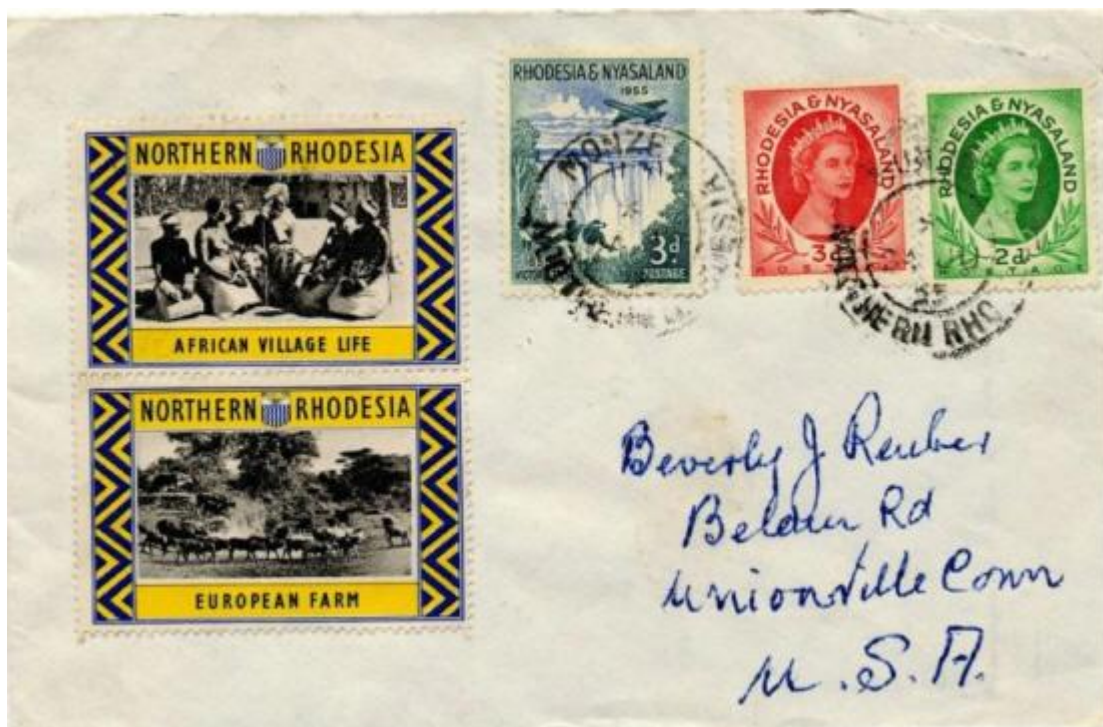 NORTHERN RHODESIA
AFRICAN VILLAGE LIFE
NORTHERN RHODESIA
EUROPEAN FARM
RHODESIA & NYASALAND
1955
3d
POSTAGE
MONZE
RHODESIA & NYASALAND
3d
POSTAGE
RHODESIA & NYASALAND
2d
POSTAGE
NORTHERN RHO
Beverly J Reuber
Rd
Unionville Conn
U.S.A.